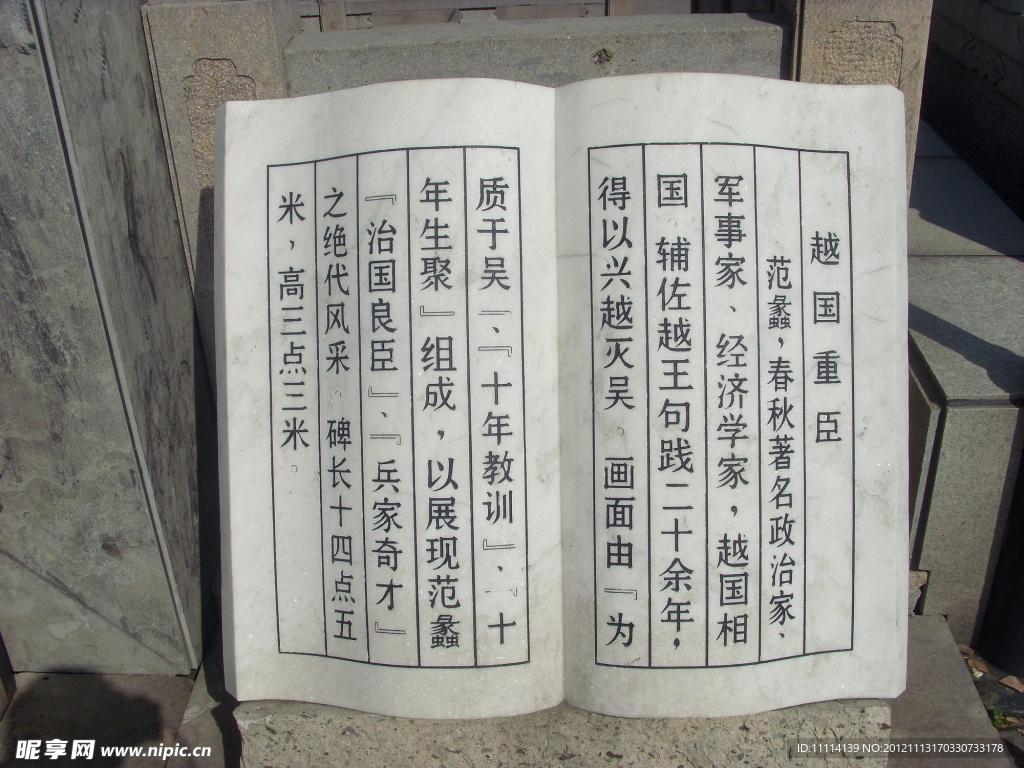 越国重臣
范蠡，春秋著名政治家、
军事家、经济学家，越国相
国 辅佐越王句践二十余年，
得以兴越灭吴。画面由『为
质于吴』、『十年教训』、『十
年生聚』组成，以展现范蠡
『治国良臣』、『兵家奇才』
之绝代风采 碑长十四点五
米，高三点三米。
昵享网 www.nipic.cn
ID:11114139 NO:20121113170330733178